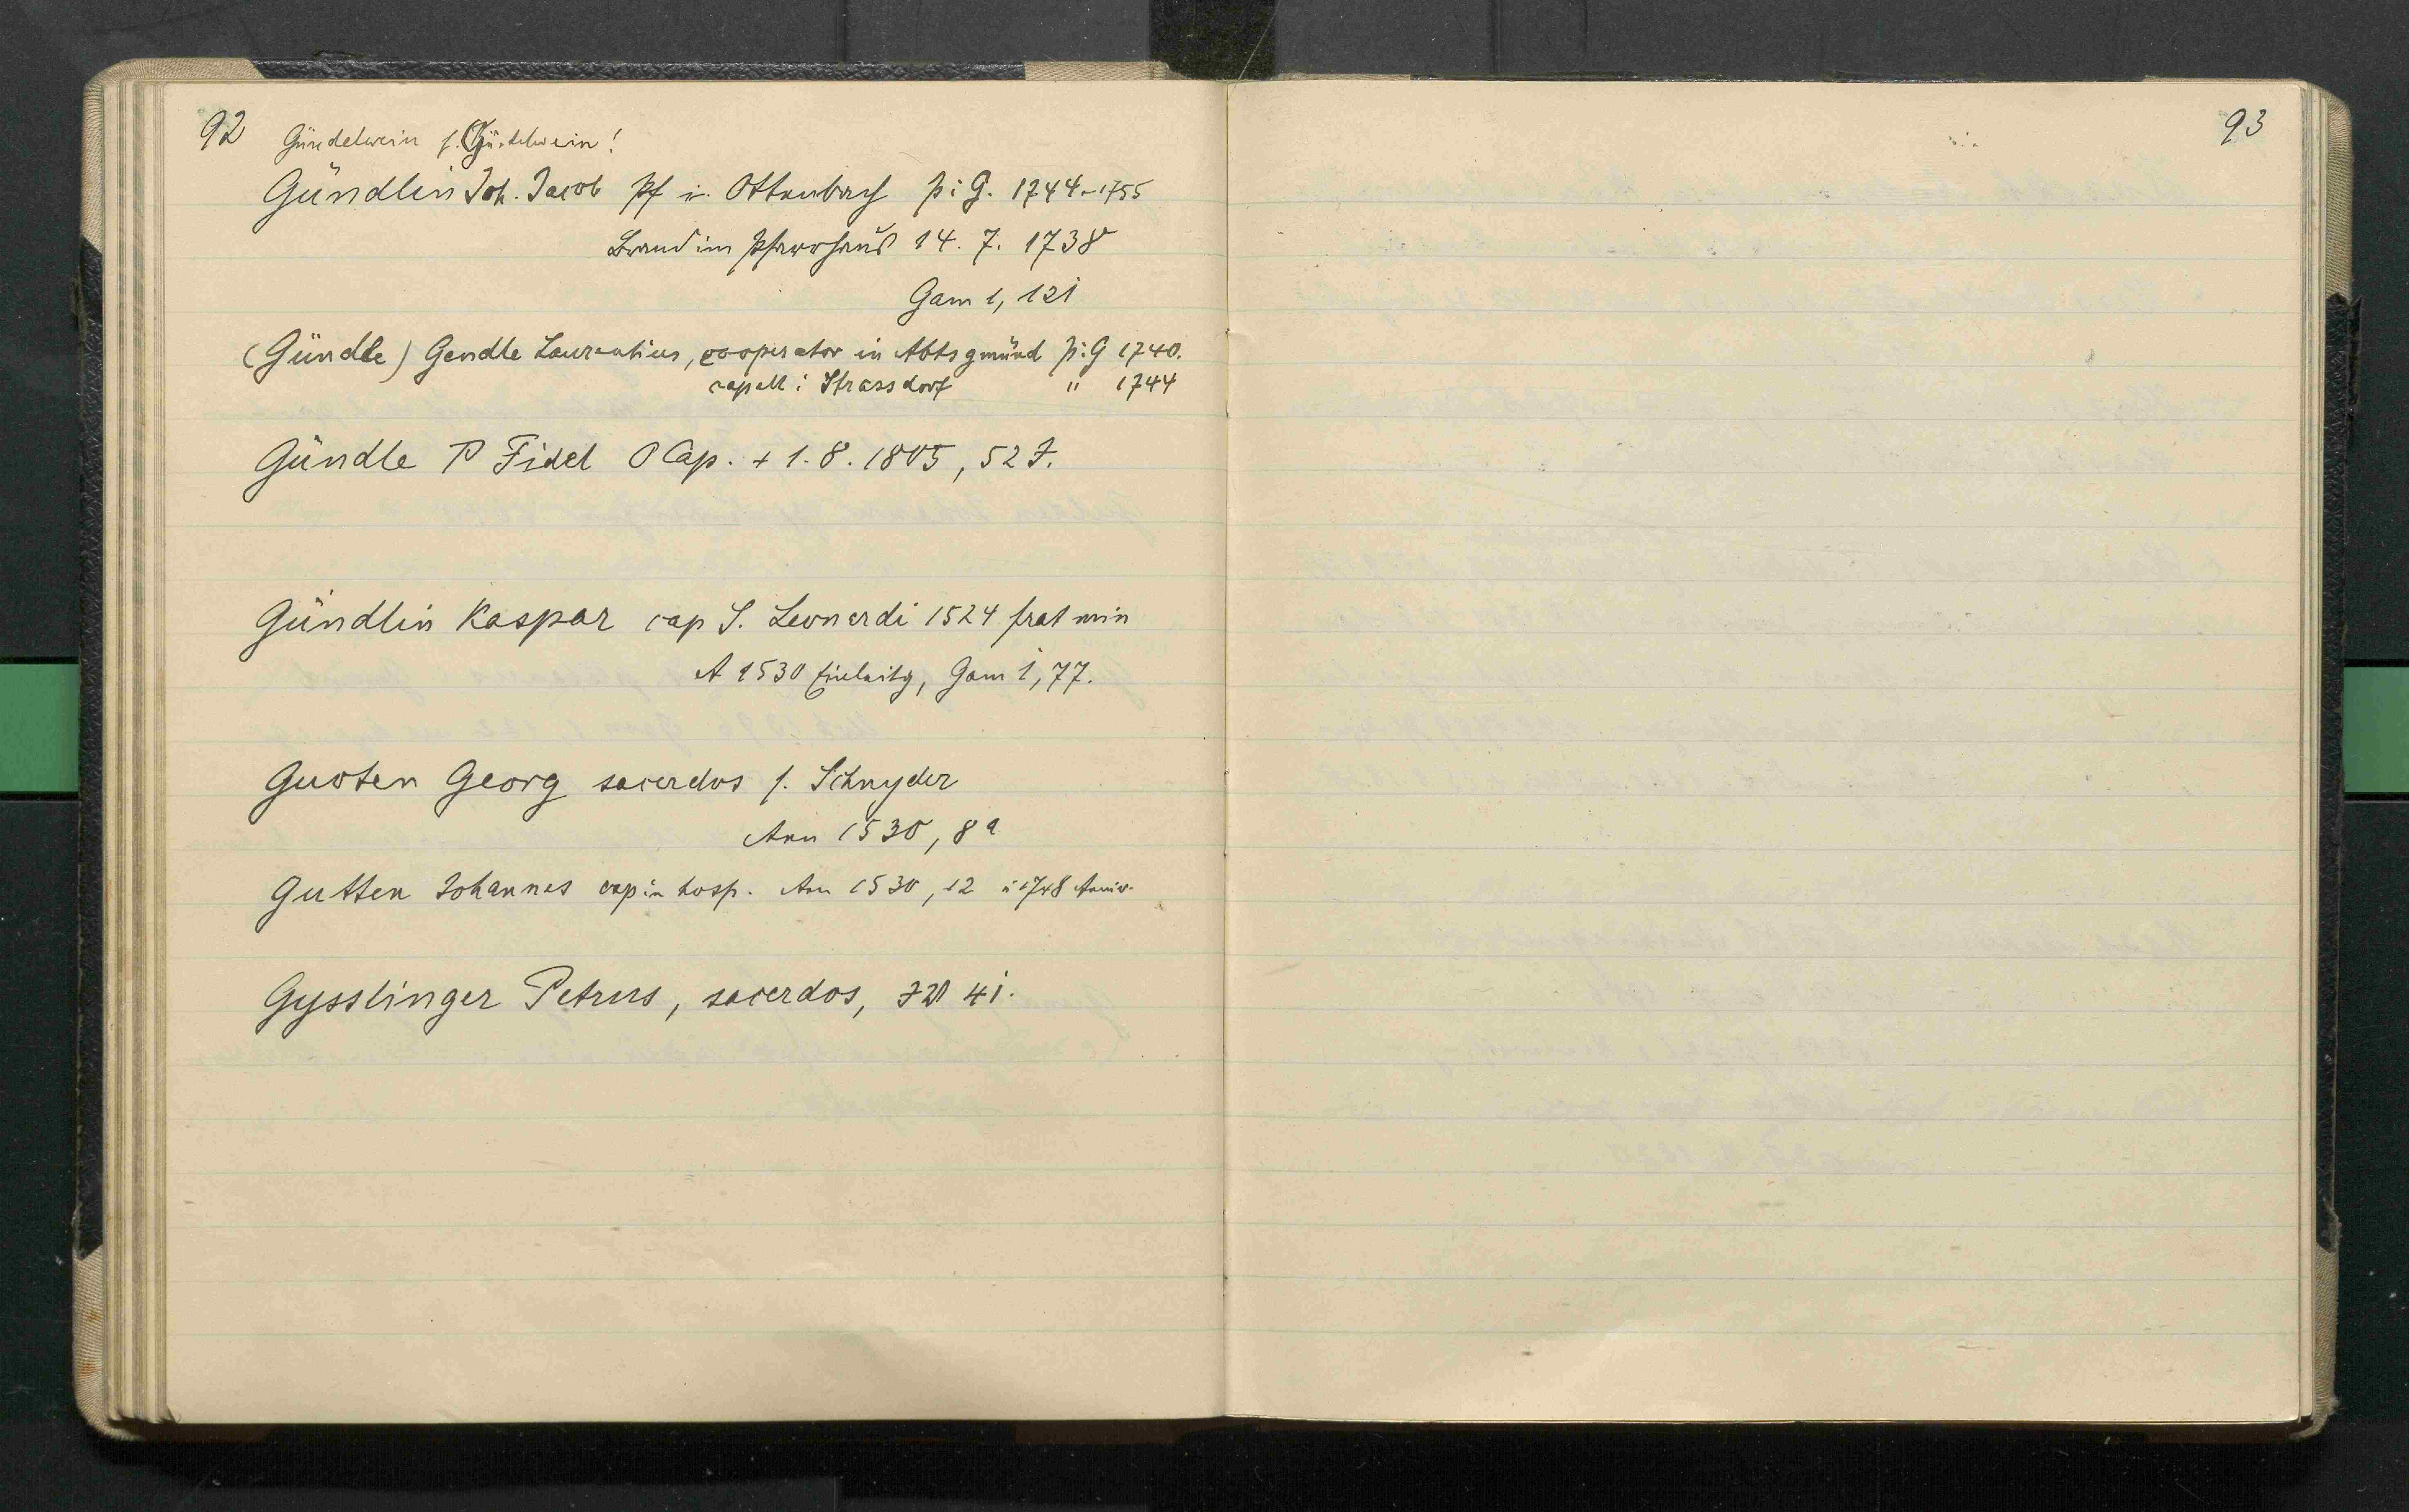 92 Gündelwein s. Gürtelwein!
Gündlin Joh. Jacob Pf in Ottenbach p: G. 1744-1755
Brand im Pfarrhaus 14. 7. 1738
Gam 1, 121
(Gündle) Gendle Laurentius, cooperator in Abtsgmünd p: G 1740.
capell: Strassdorf " 1744
Gündle P Fidel O Cap. + 1. 8. 1805, 52 J.
Gündlin Kaspar cap S. Leonardi 1524 frat min
A 1530 Einleitg, Gam 1, 77.
Guoten Georg sacerdos s. Schnyder
Ann 1530, 8a
Gutten Johannes cap in hosp. Ann 1530, 12
Gysslinger Petrus, sacerdos, 41.
93